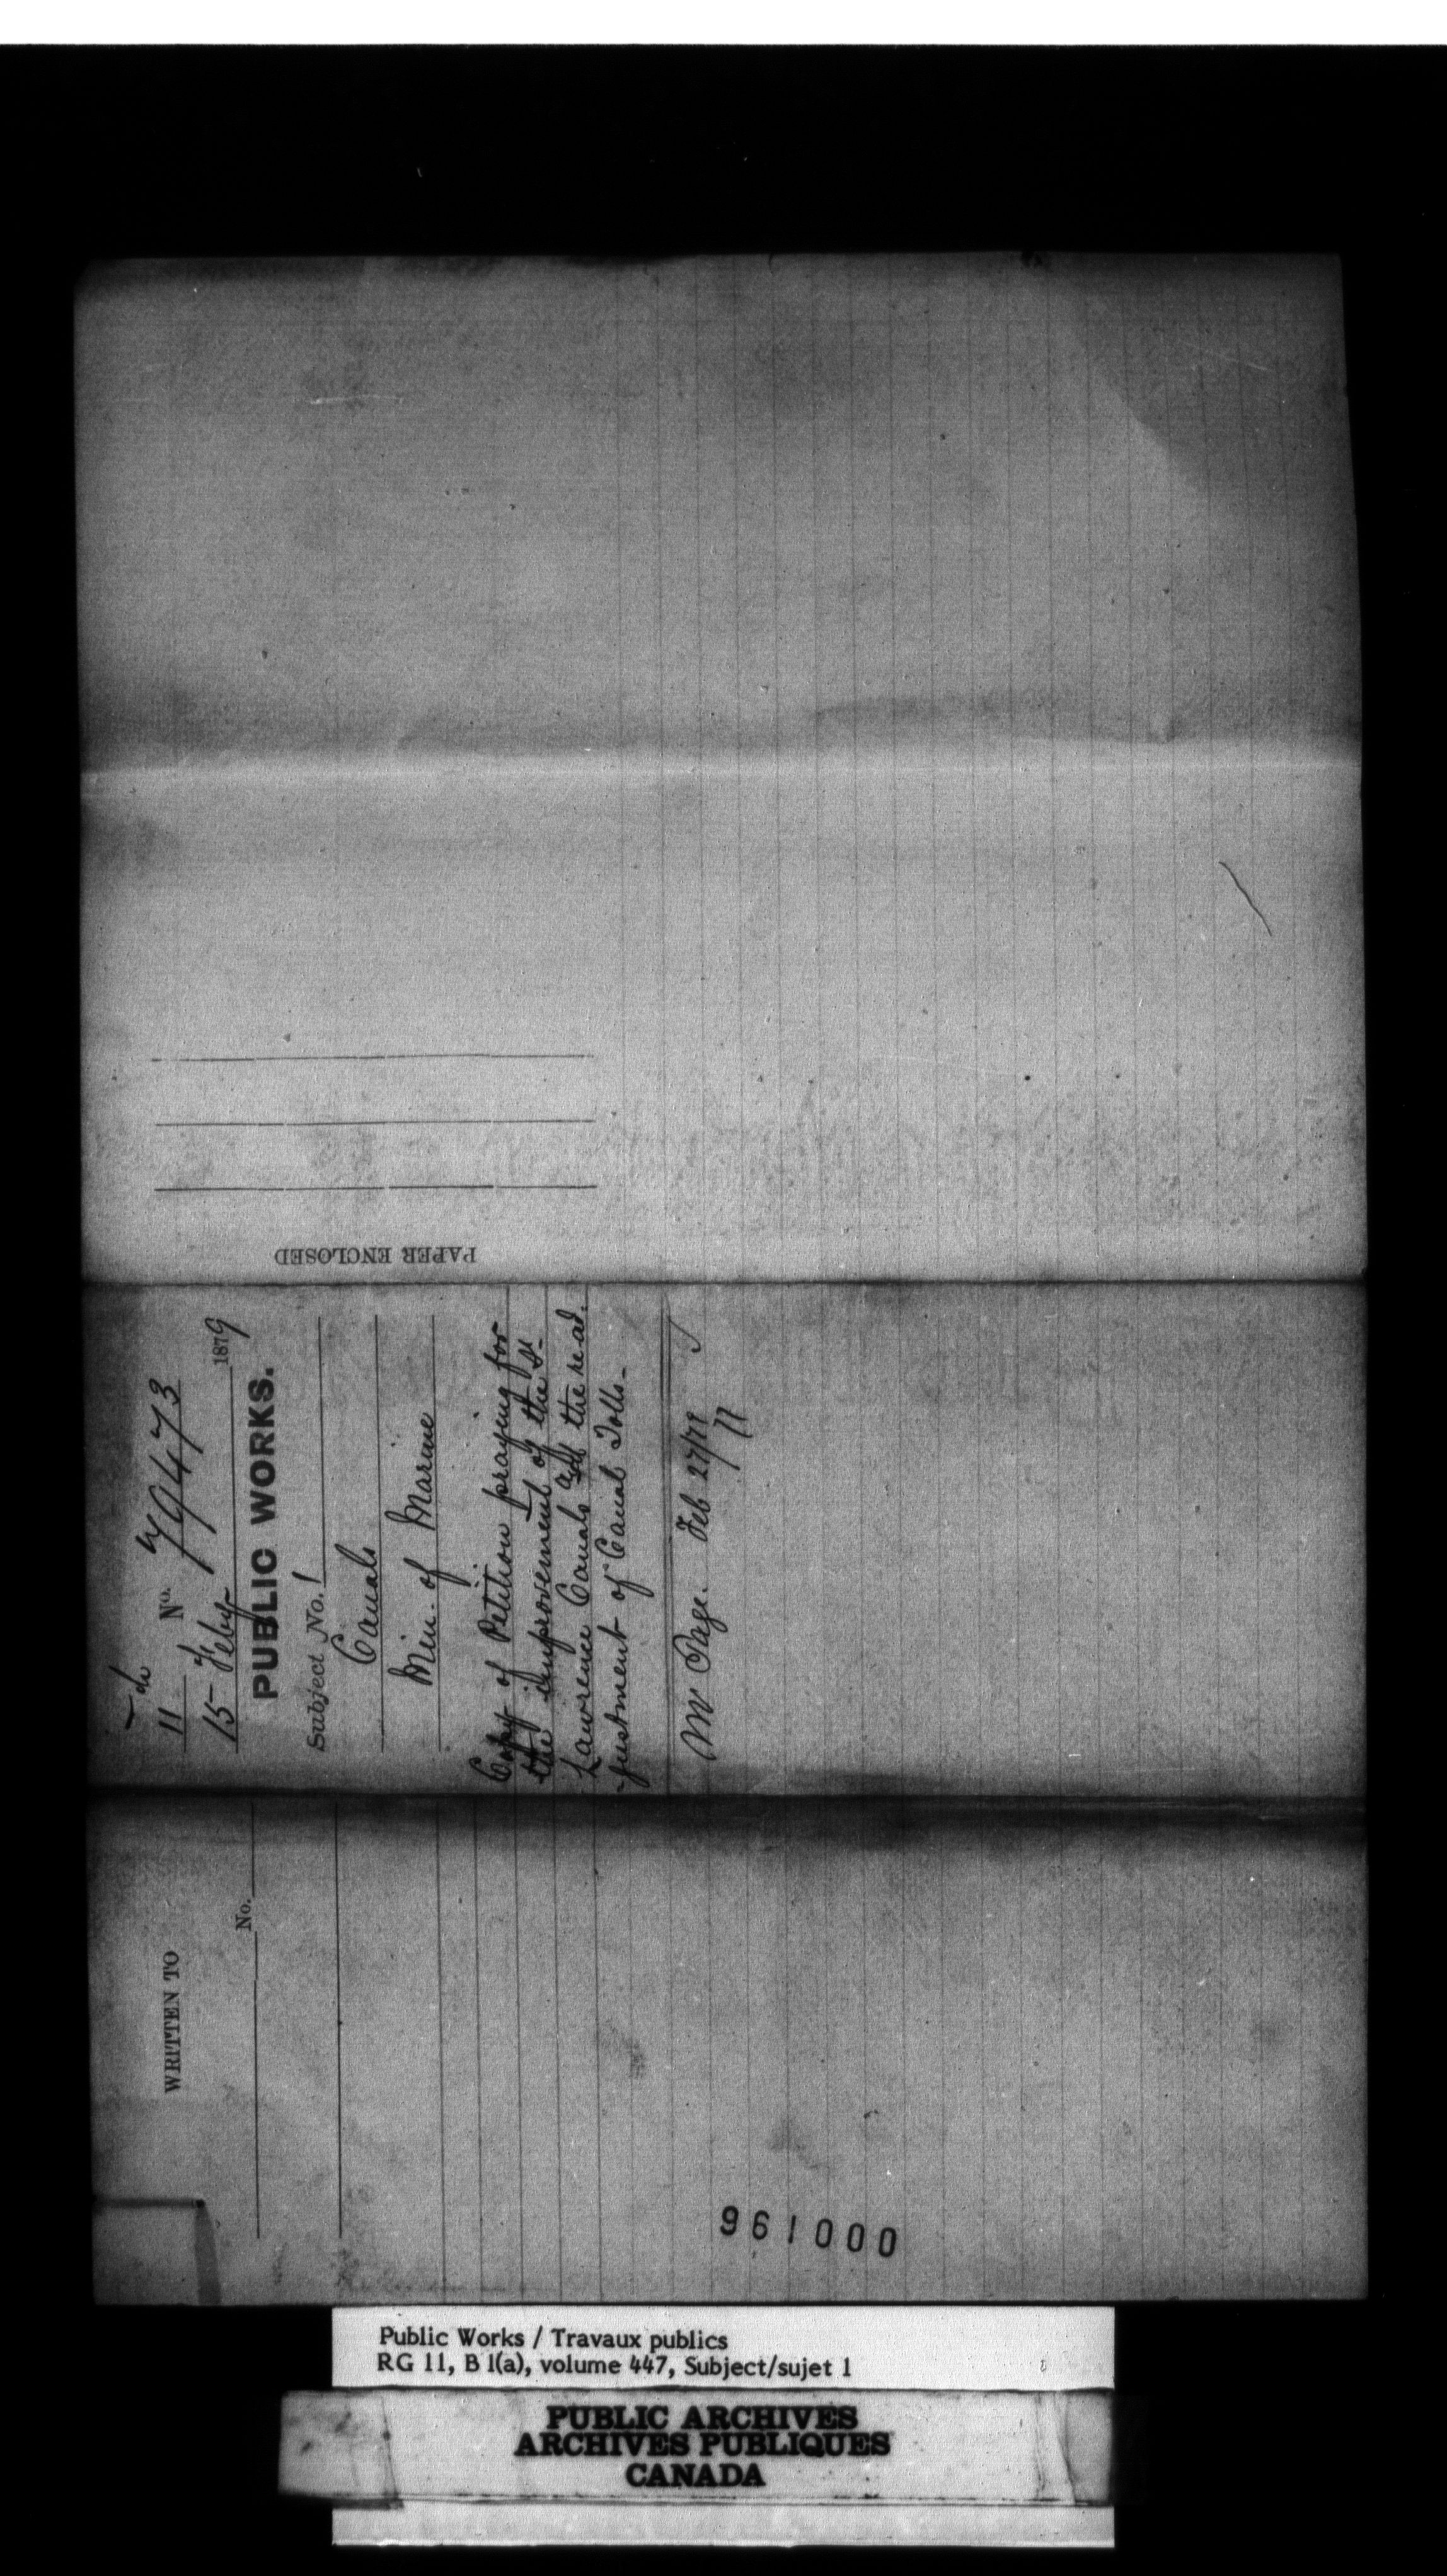 11 No. 79473
15 Feby 1879
PUBLIC WORKS.
Subject No. 1
Canals
Min. of Marine
Copy of Petition praying for
the improvement of the St.
Lawrence Canals and the re-ad-
justment of Canal Tolls-
Mr Page. Feb 27/79
PAPER ENCLOSED
WRITTEN TO
No.
961000
Public Works / Travaux publics
RG 11, B 1(a), volume 447, Subject/sujet 1
PUBLIC ARCHIVES
ARCHIVES PUBLIQUES
CANADA